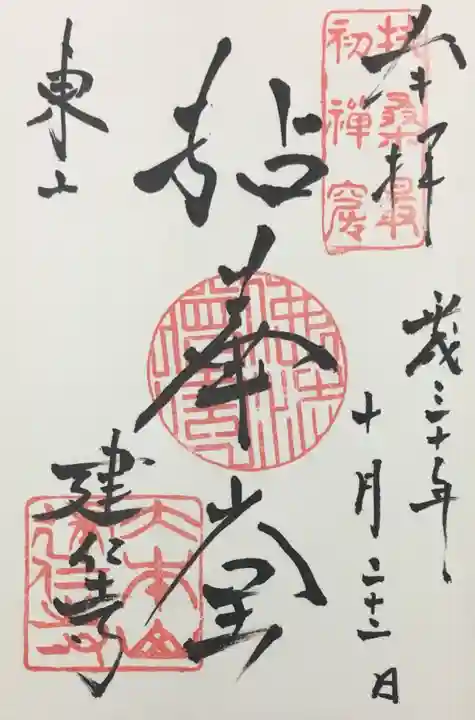 奉拝
扶桑最
初禪窟
平成三十年
十月二十二日
拈華堂
佛法僧寶
東山
建仁寺
大本山
建仁寺